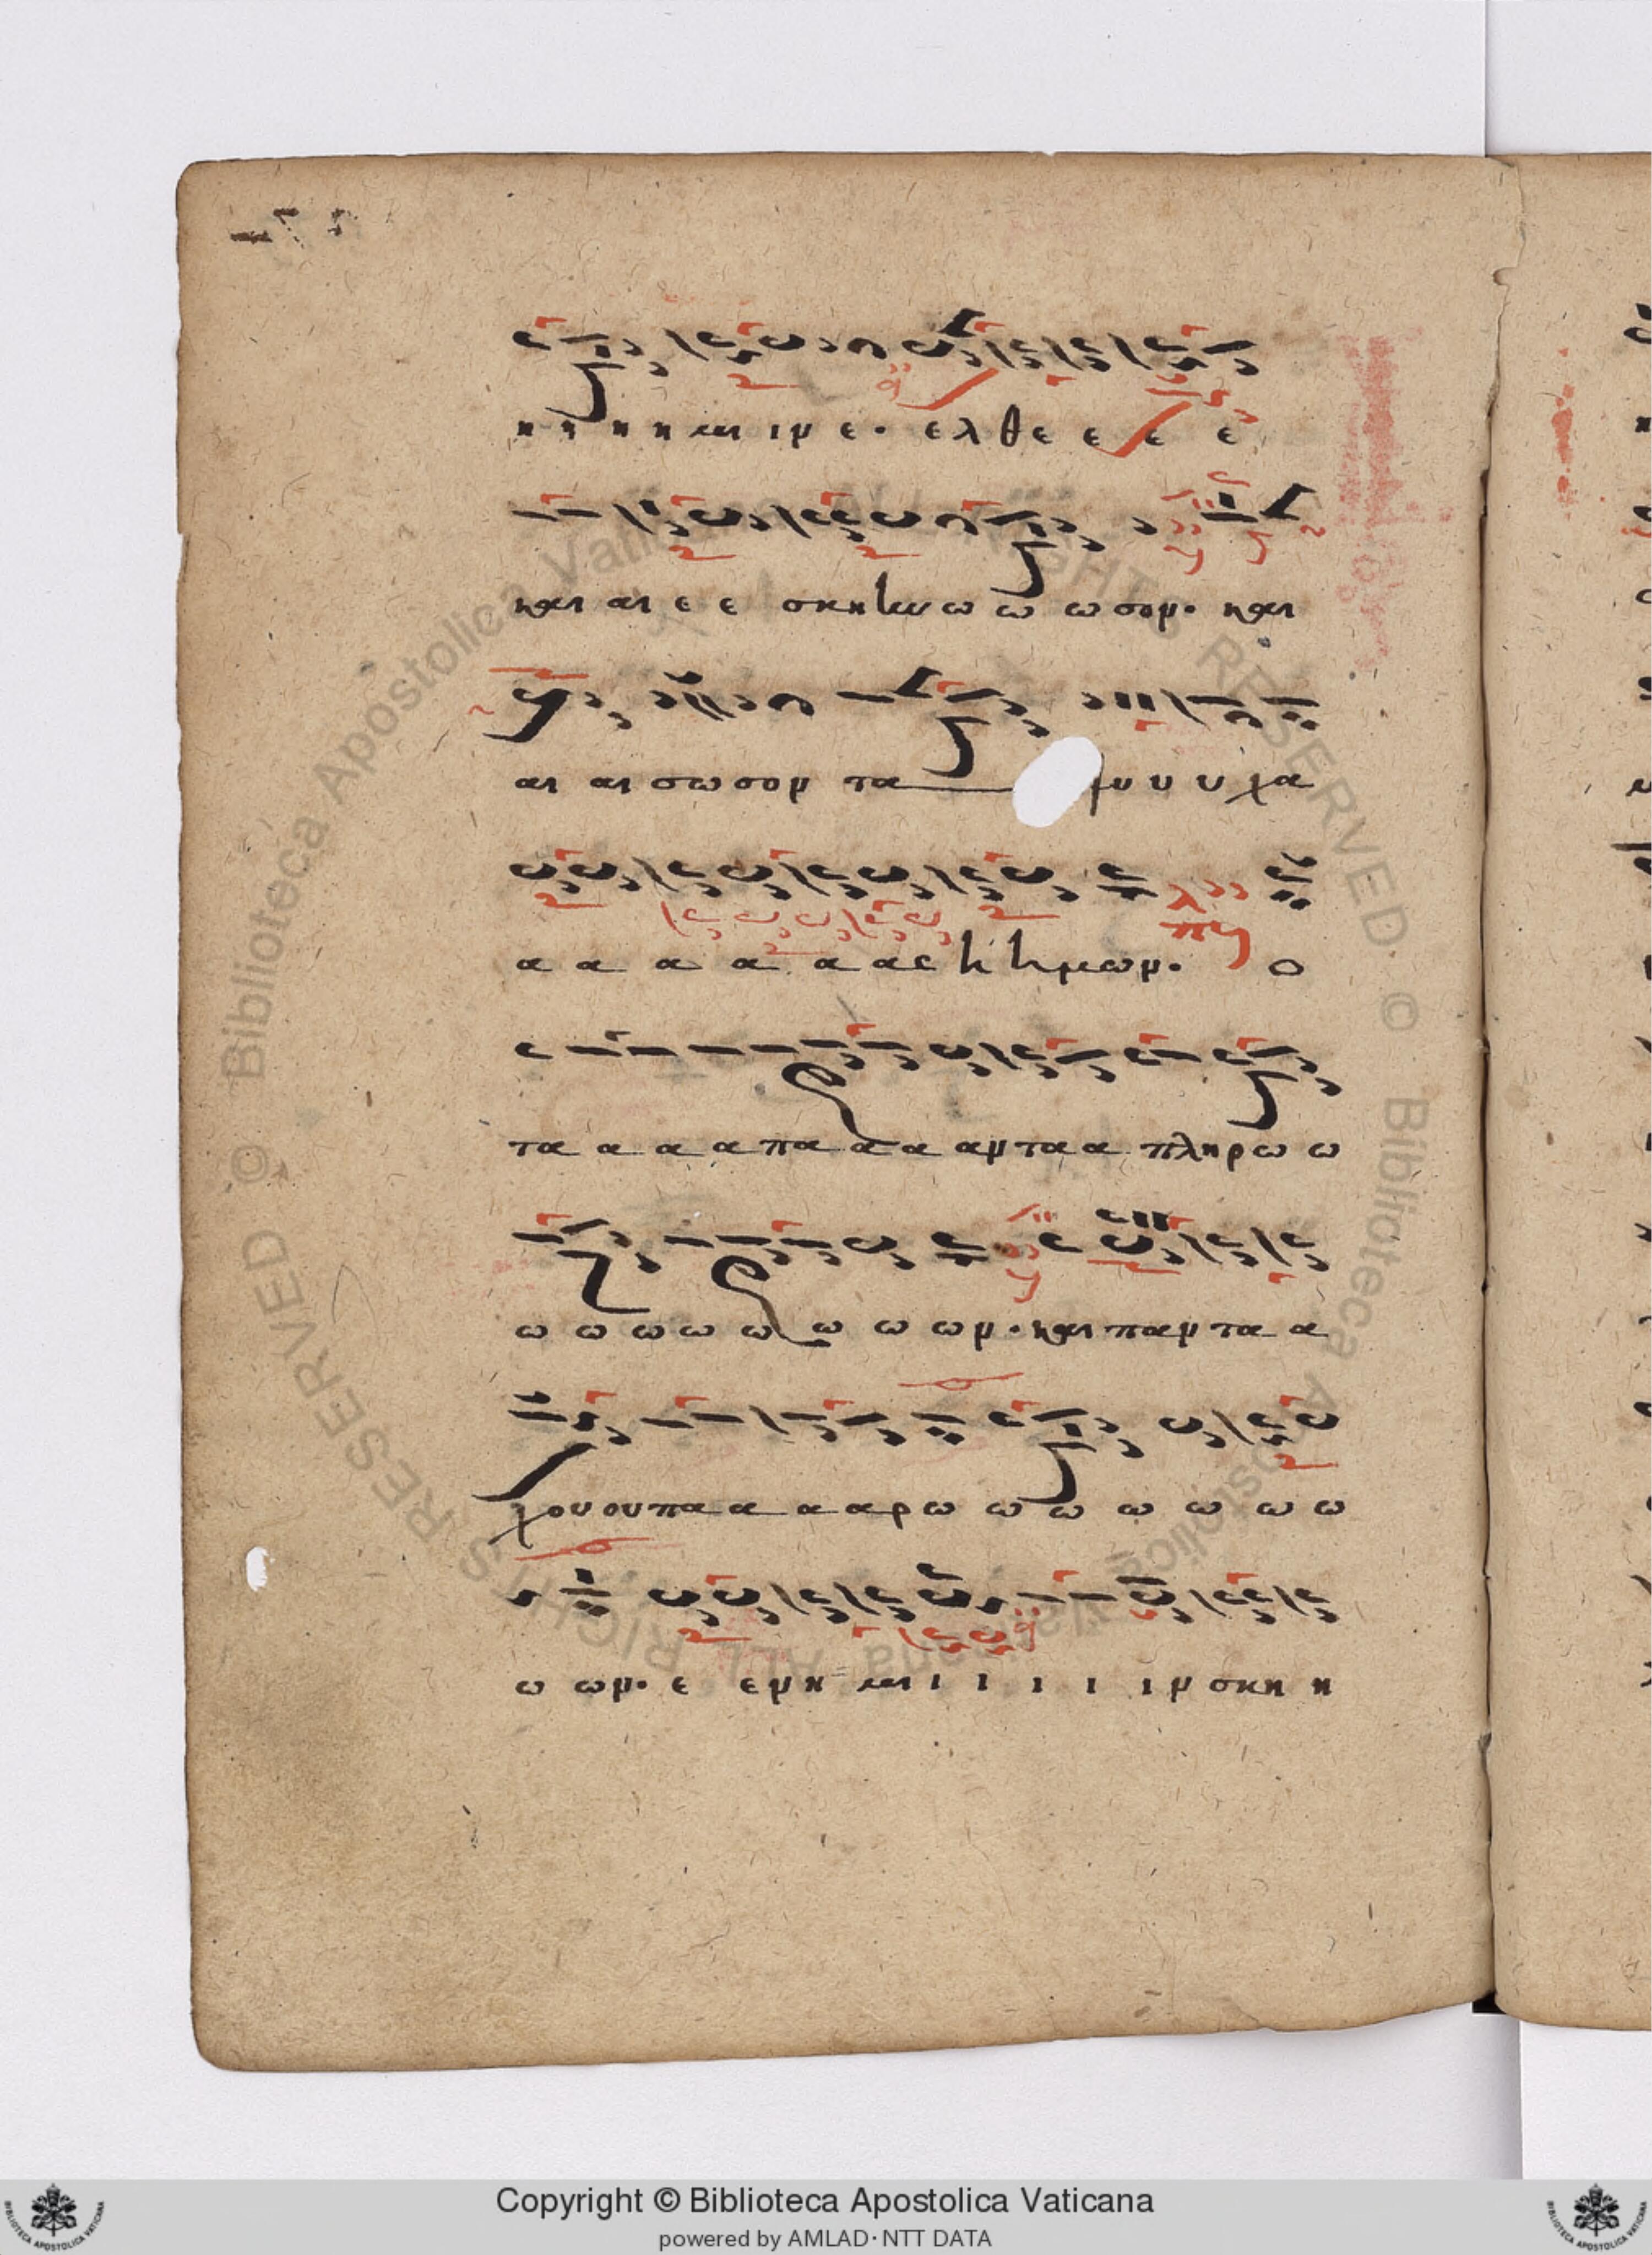 η η η η μιν ε · ελθε ε ε ε
και αι ε ε σκηνω ω ω ωσον · και
αι αι σωσον τα ψυ υ υ χα
α α α α α ας η ημων · ο
τα α α α πα α α αν τα α πληρω ω
ω ω ω ω ω ω ω ων · και παν τα α
χου ου πα α α α αρω ω ω ω ω ω ω
ω ων · ε εν η μι ι ι ι ι ιν σκη η
Copyright © Biblioteca Apostolica Vaticana
powered by AMLAD · NTT DATA